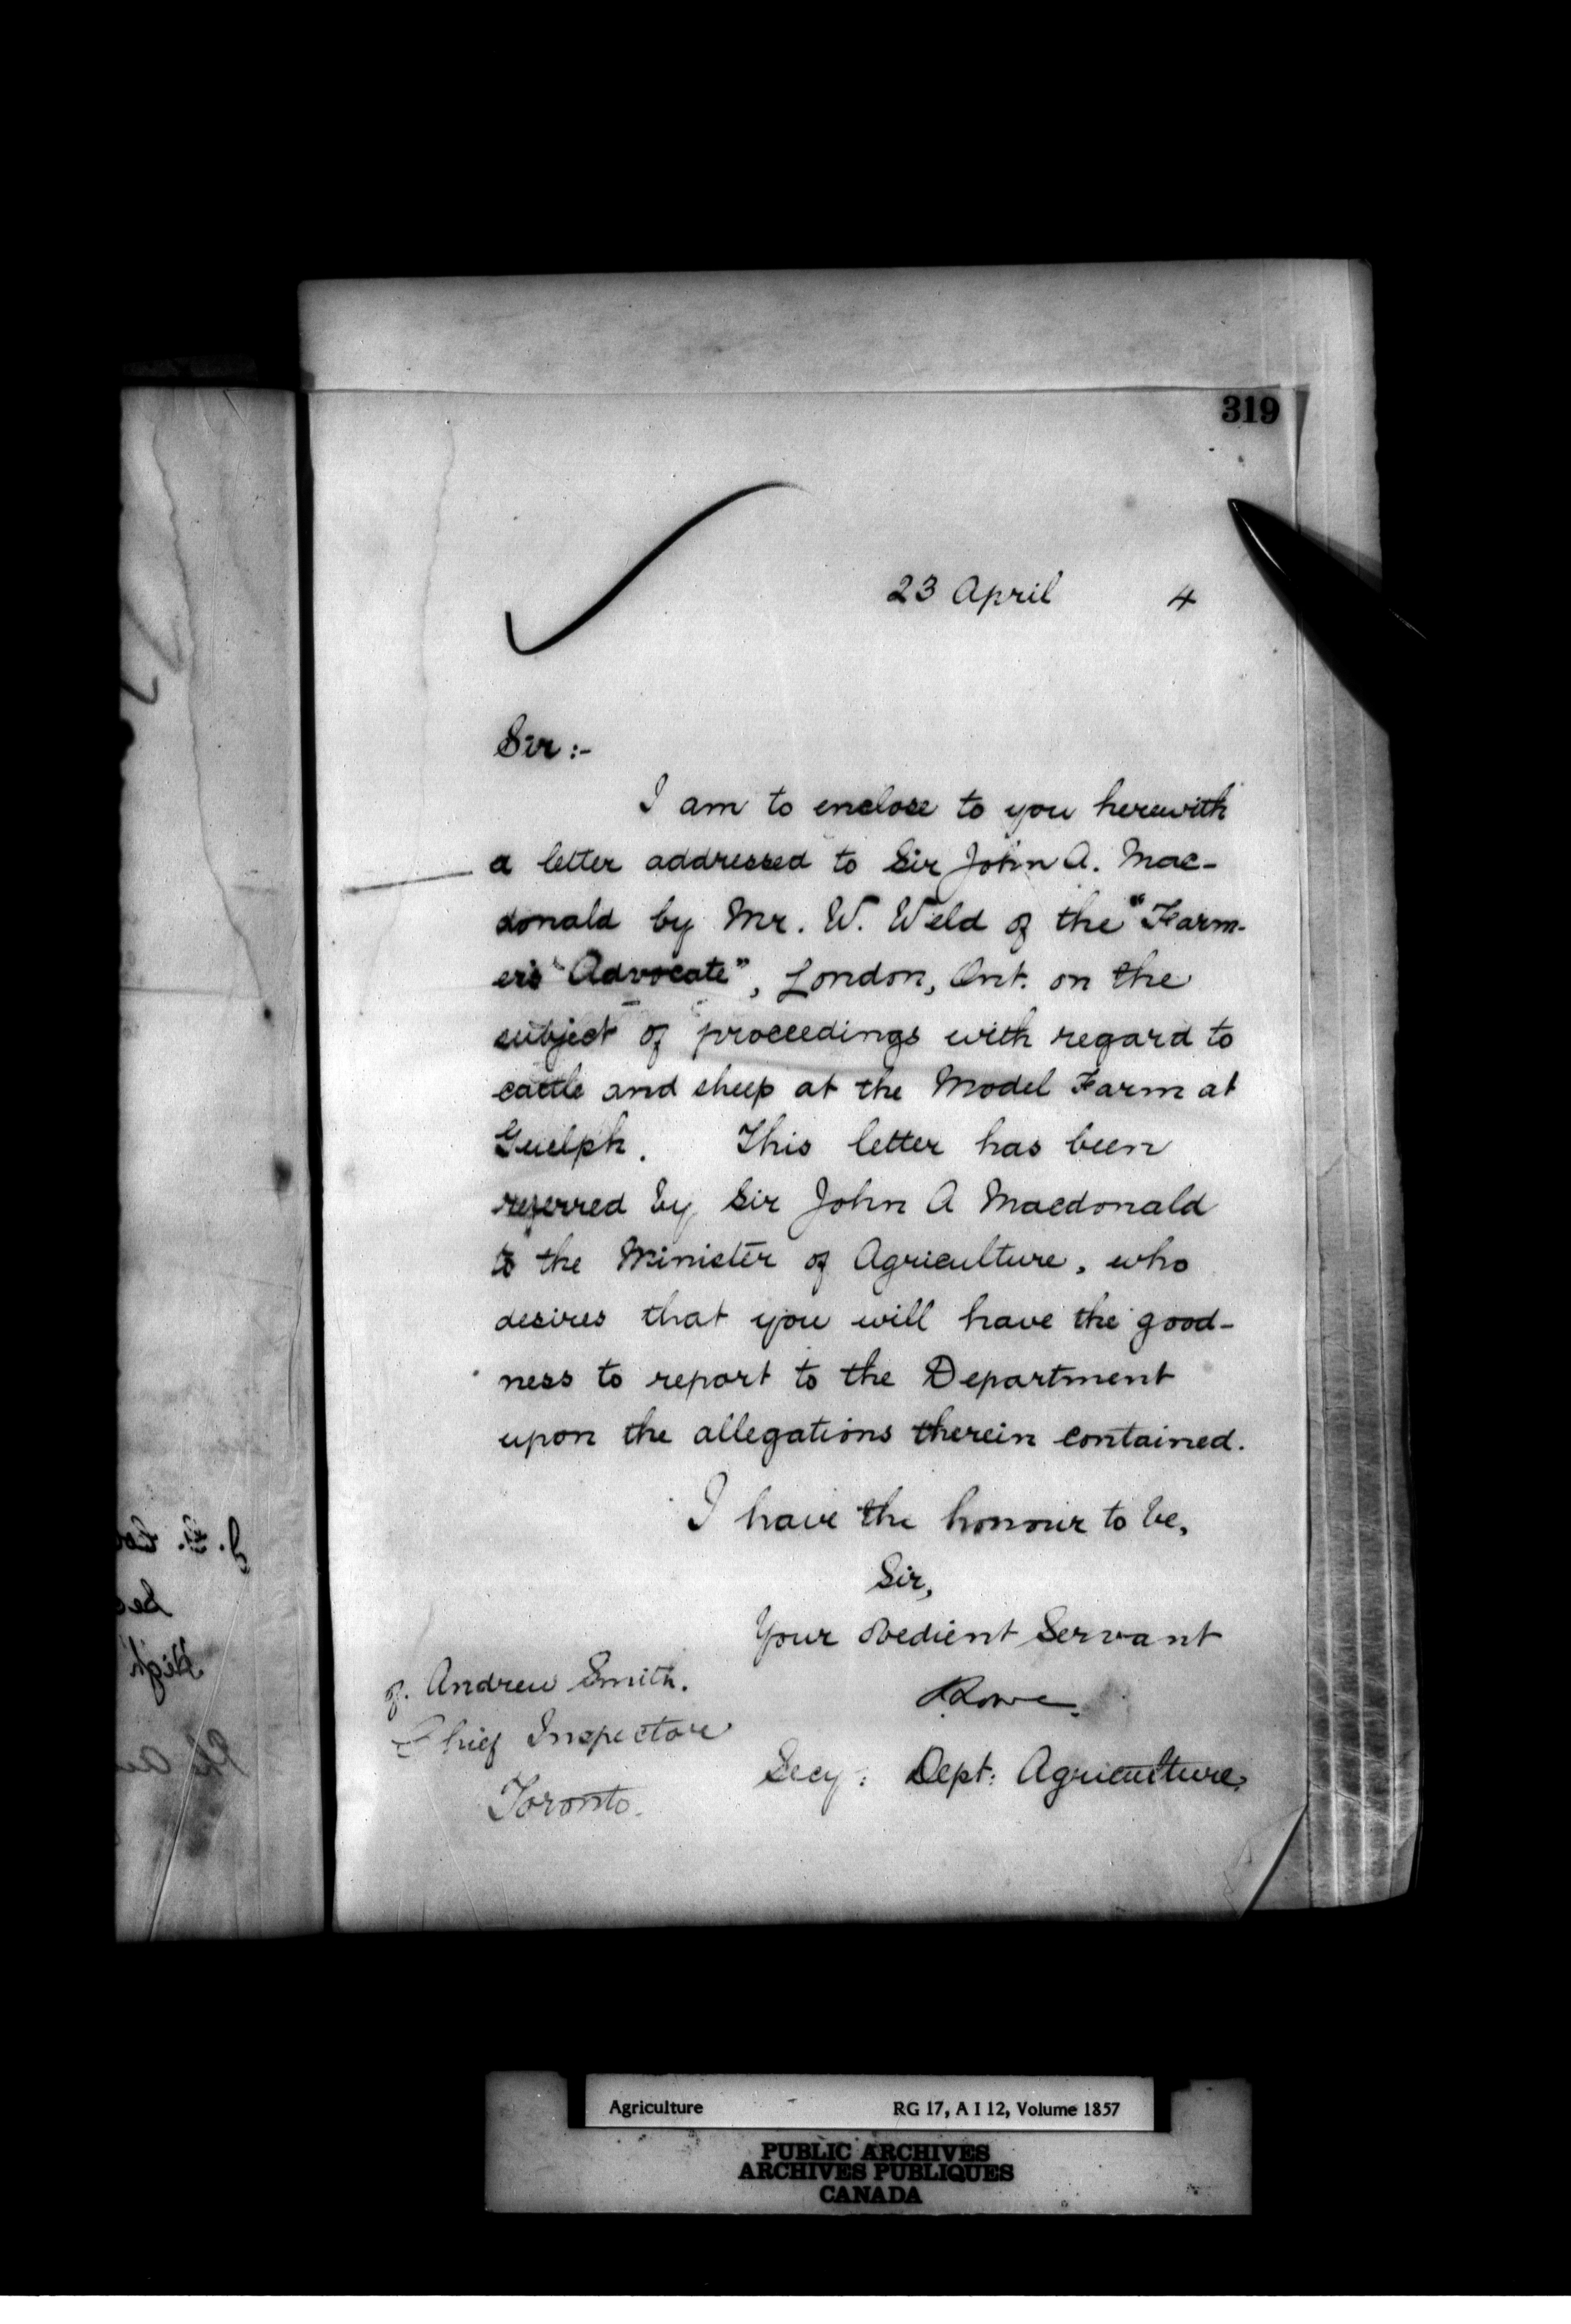 319
23 April 4
Sir :-
I am to enclose to you herewith
a letter addressed to Sir John A. Mac-
donald by Mr. W. Weld of the "Farm-
er's Advocate", London, Ont. on the
subject of proceedings with regard to
cattle and sheep at the Model Farm at
Guelph. This letter has been
referred by Sir John A Macdonald
to the Minister of Agriculture, who
desires that you will have the good-
ness to report to the Department
upon the allegations therein contained.
I have the honour to be,
Sir,
Your obedient Servant
Lowe
Secy: Dept: Agriculture
Andrew Smith.
Chief Inspector
Toronto.
Agriculture RG 17, A I 12, Volume 1857
PUBLIC ARCHIVES
ARCHIVES PUBLIQUES
CANADA